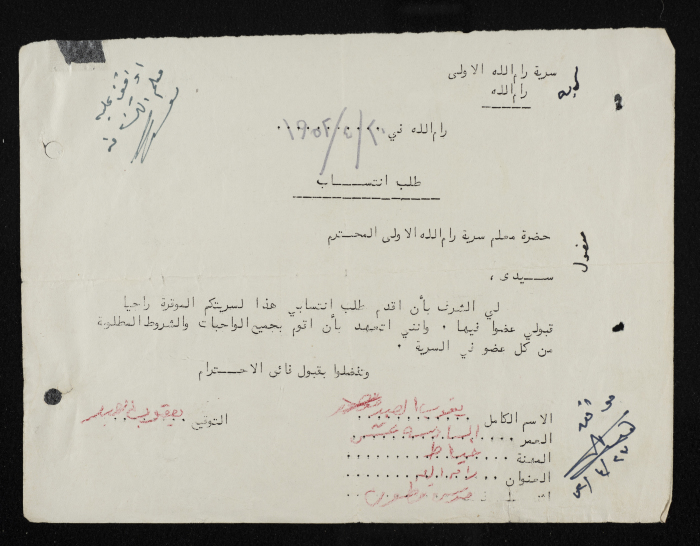 سرية رام الله الاولى
رام الله
سرية
أوافق عليه
معلم
رام الله في ٢٠/٤/١٩٥٢
طلب انتساب
حضرة معلم سرية رام الله الاولى المحترم
مقبول
سيدى ،
لي الشرف بأن اقدم طلب انتسابي هذا لسريتكم الموقرة راجيا
قبولي عضوا فيها . وانني اتعهد بأن اقوم بجميع الواجبات والشروط المطلوبة
من كل عضو في السرية .
وتفضلوا بقبول فائق الاحترام
الاسم الكامل يعقوب
التوقيع يعقوب
العمر السادسة عشر
المهنة خياط
العنوان رام الله
موافق